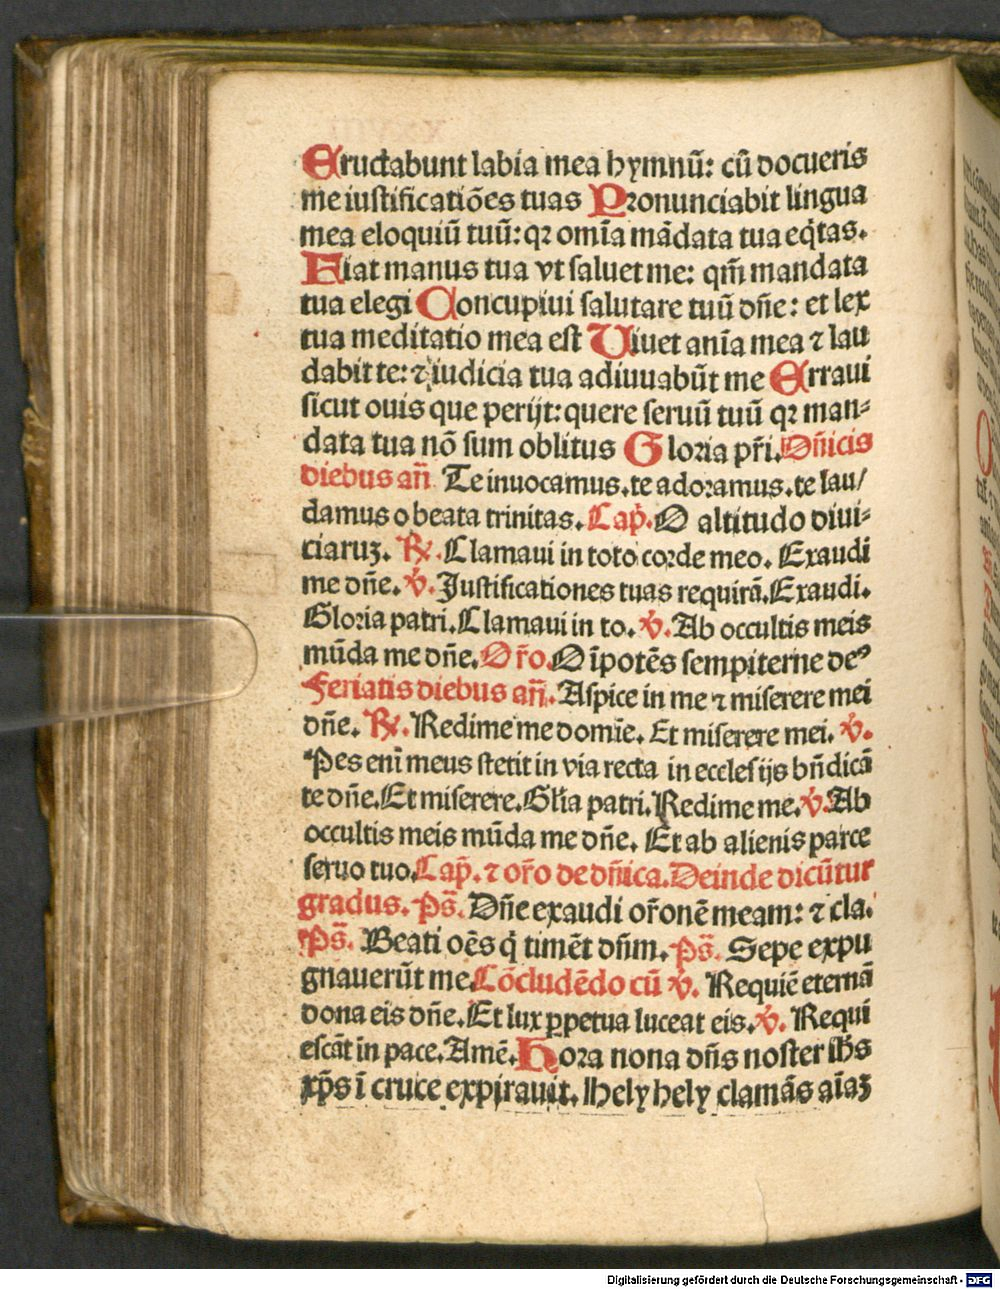 Eructabunt labia mea hymnū: cū docueris
me iustificatiōes tuas Pronunciabit lingua
mea eloquiū tuū: qꝛ om̄ia mādata tua eq̇tas.
Fiat manus tua vt saluet me: qm̄ mandata
tua elegi Concupiui salutare tuū dn̄e: et lex
tua meditatio mea est Uiuet anīa mea ⁊ lau
dabit te: ⁊ iudicia tua adiuuabūt me Erraui
sicut ouis que perijt: quere seruū tuū qꝛ man⸗
data tua nō sum oblitus Gloria pr̄i. Dn̄icis
diebus an̄ Te inuocamus. te adoramus. te lau/
damus o beata trinitas. Cap̄. O altitudo diui⸗
ciaruꝫ. ℞. Clamaui in toto corde meo. Exaudi
me dn̄e. ℣. Justificationes tuas requirā. Exaudi.
Gloria patri. Clamaui in to. ℣. Ab occultis meis
mūda me dn̄e. Or̄o. O īpotēs sempiterne deꝰ
Feriatis diebus an̄. Aspice in me ⁊ miserere mei
dn̄e. ℞. Redime me domīe. Et miserere mei. ℣.
Pes enī meus stetit in via recta in ecclesijs bn̄dicā
te dn̄e. Et miserere. Glīa patri. Redime me. ℣. Ab
occultis meis mūda me dn̄e. Et ab alienis parce
seruo tuo. Cap̄. ⁊ or̄o de dn̄ica. Deinde dicūtur
gradus. Ps̄. Dn̄e exaudi or̄onē meam: ⁊ cla.
Ps̄. Beati oēs q̇ timēt dn̄m. Ps̄. Sepe expu
gnauerūt me Cōcludēdo cū ℣. Requiē eternā
dona eis dn̄e. Et lux ꝑpetua luceat eis. ℣. Requi
escāt in pace. Amē. Hora nona dn̄s noster ih̄s
xp̄s ī cruce expirauit. Hely hely clamās aīaꝫ
Digitalisierung gefördert durch die Deutsche Forschungsgemeinschaft - DFG